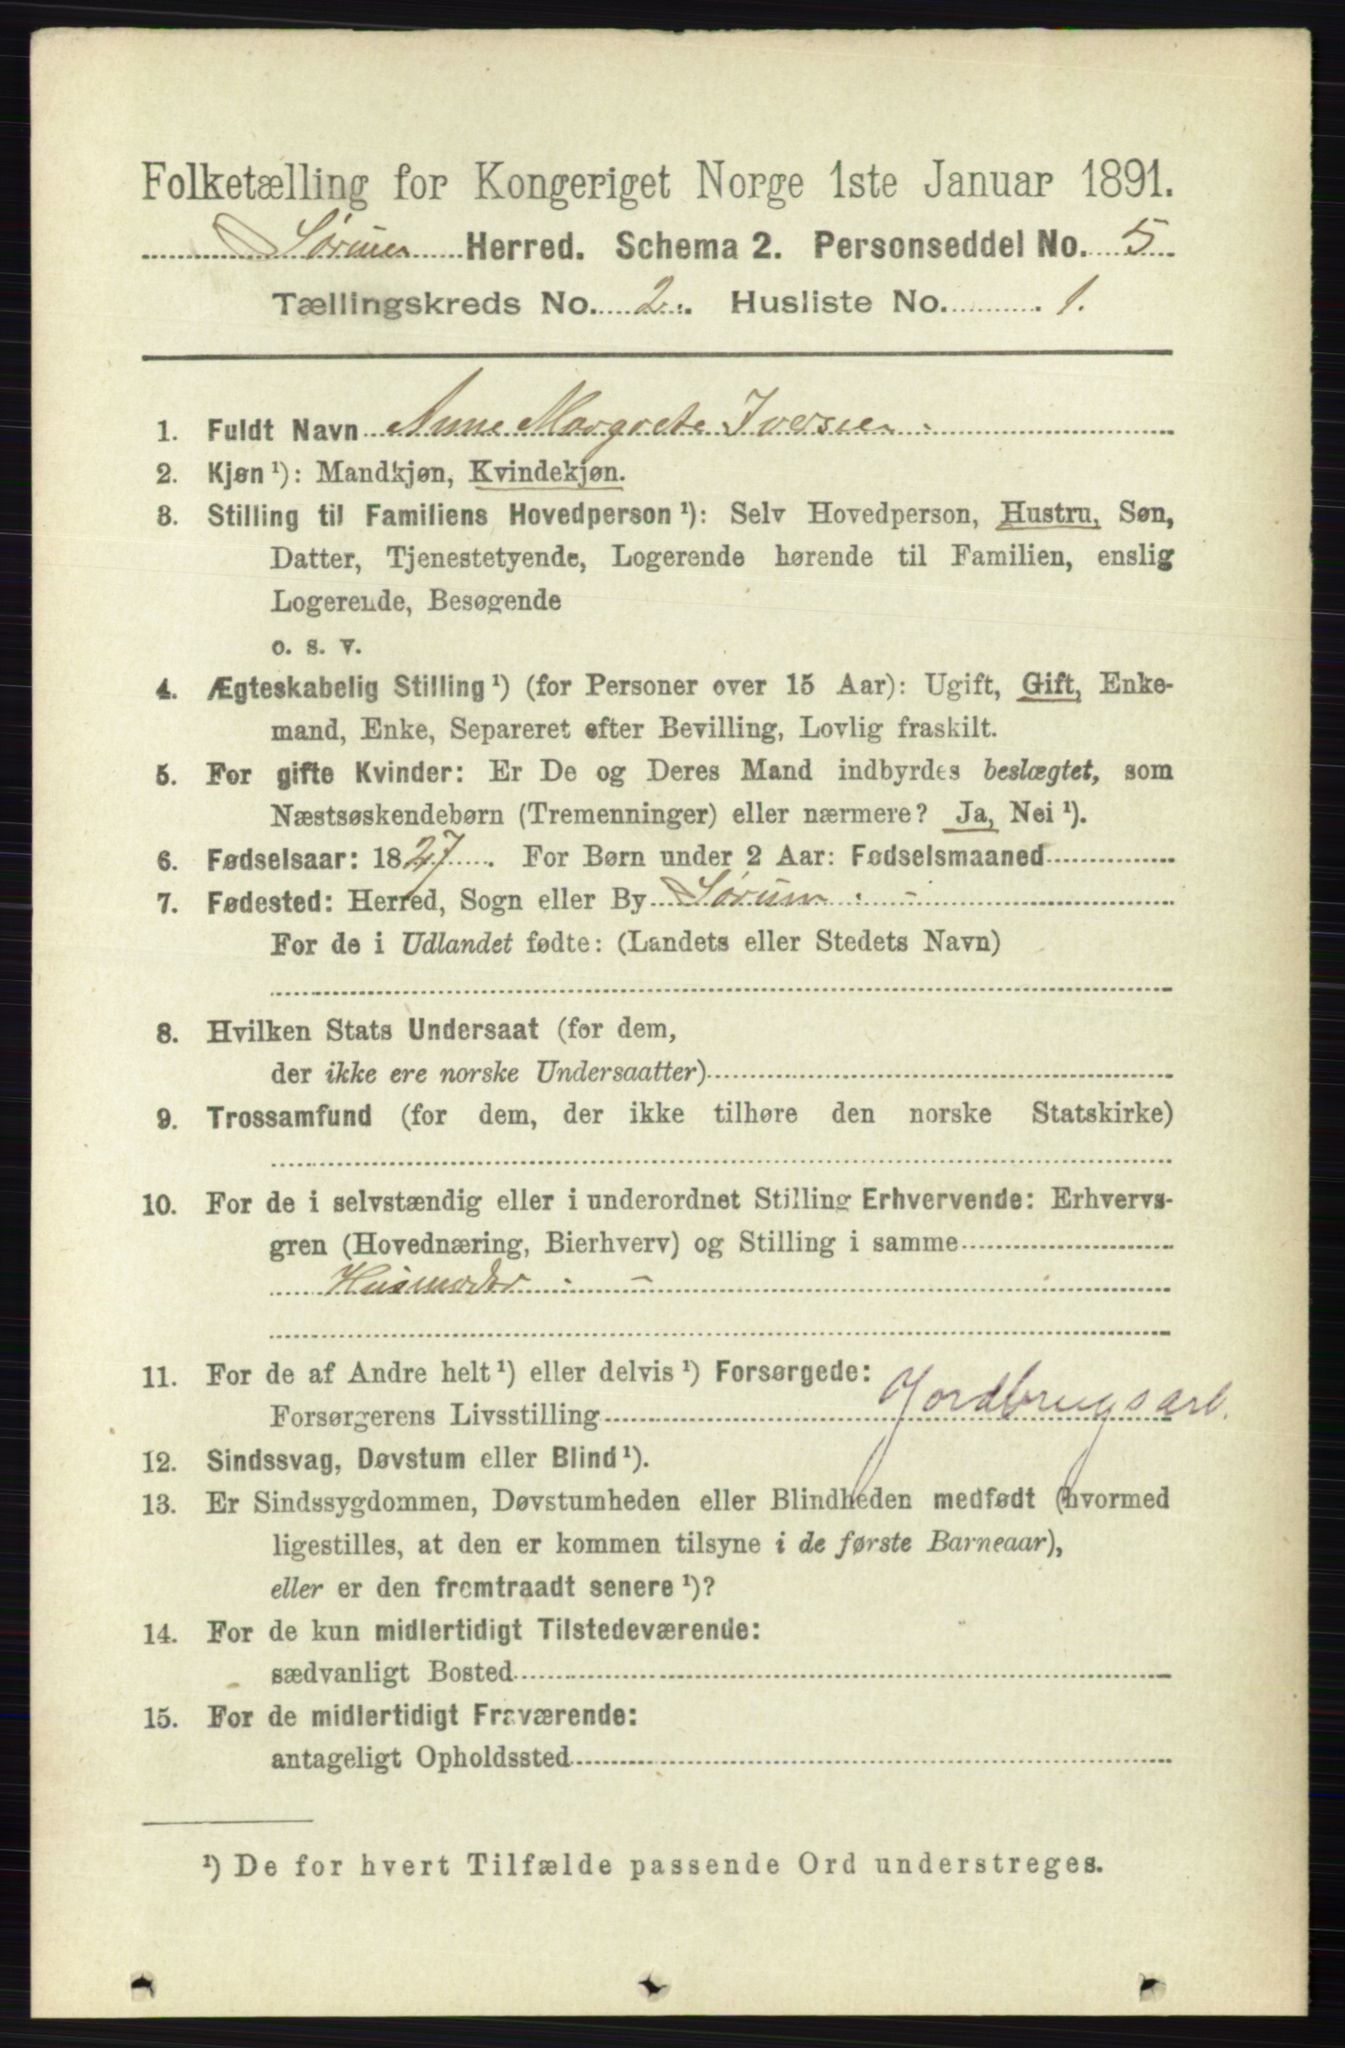 Folketælling for Kongeriget Norge 1ste Januar 1891.
Sørum Herred. Schema 2. Personseddel No. 5
Tællingskreds No. 2. Husliste No. 1.
1. Fuldt Navn Anne Margrete Iversen
2. Kjøn¹): Mandkjøn, Kvindekjøn.
3. Stilling til Familiens Hovedperson¹): Selv Hovedperson, Hustru, Søn,
Datter, Tjenestetyende, Logerende hørende til Familien, enslig
Logerende, Besøgende
o. s. v.
4. Ægteskabelig Stilling¹) (for Personer over 15 Aar): Ugift, Gift, Enke-
mand, Enke, Separeret efter Bevilling, Lovlig fraskilt.
5. For gifte Kvinder: Er De og Deres Mand indbyrdes beslægtet, som
Næstsøskendebørn (Tremenninger) eller nærmere? Ja, Nei¹).
6. Fødselsaar: 1827. For Børn under 2 Aar: Fødselsmaaned
7. Fødested: Herred, Sogn eller By Sørum
For de i Udlandet fødte: (Landets eller Stedets Navn)
8. Hvilken Stats Undersaat (for dem,
der ikke ere norske Undersaatter)
9. Trossamfund (for dem, der ikke tilhøre den norske Statskirke)
10. For de i selvstændig eller i underordnet Stilling Erhvervende: Erhvervs-
gren (Hovednæring, Bierhverv) og Stilling i samme
Husmoder
11. For de af Andre helt¹) eller delvis¹) Forsørgede:
Forsørgerens Livsstilling Jordbrugsarb.
12. Sindssvag, Døvstum eller Blind¹).
13. Er Sindssygdommen, Døvstumheden eller Blindheden medfødt (hvormed
ligestilles, at den er kommen tilsyne i de første Barneaar),
eller er den fremtraadt senere¹)?
14. For de kun midlertidigt Tilstedeværende:
sædvanligt Bosted
15. For de midlertidigt Fraværende:
antageligt Opholdssted
¹) De for hvert Tilfælde passende Ord understreges.